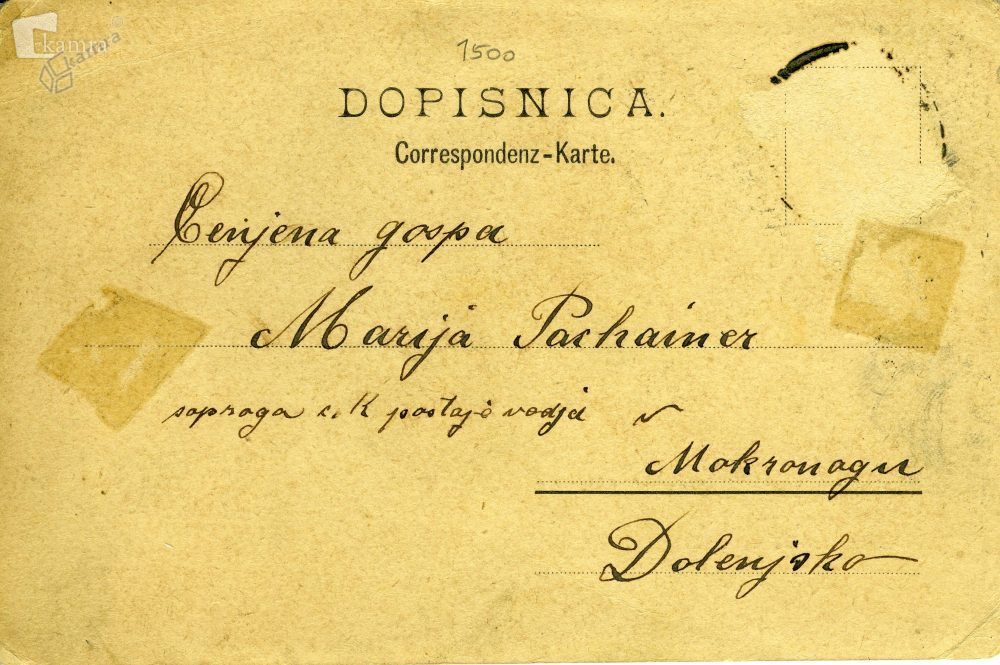 kamra
kamra
1500
DOPISNICA.
Correspondenz-Karte.
Cenjena gospa
Marija Pachainer
soproga c. K postaje vodja v
Mokronogu
Dolenjsko